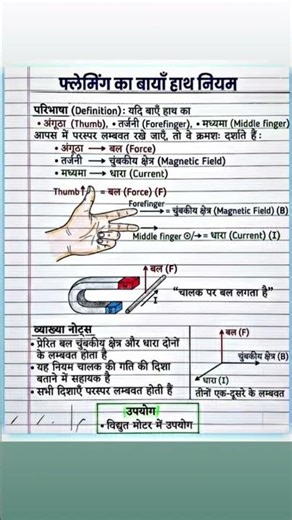 फ्लेमिंग का बायाँ हाथ नियम
परिभाषा (Definition): यदि बाएँ हाथ का
• अंगूठा (Thumb), • तर्जनी (Forefinger), • मध्यमा (Middle finger)
आपस में परस्पर लम्बवत रखे जाएँ, तो वे क्रमशः दर्शाते हैं :
• अंगूठा → बल (Force)
• तर्जनी → चुंबकीय क्षेत्र (Magnetic Field)
• मध्यमा → धारा (Current)
Thumb ↑ = बल (Force) (F)
Forefinger
→ = चुंबकीय क्षेत्र (Magnetic Field) (B)
Middle finger ⊙/→ = धारा (Current) (I)
बल (F)
I
“चालक पर बल लगता है”
व्याख्या नोट्स
• प्रेरित बल चुंबकीय क्षेत्र और धारा दोनों
के लम्बवत होता है
• यह नियम चालक की गति की दिशा
बताने में सहायक है
• सभी दिशाएँ परस्पर लम्बवत होती हैं
बल (F)
चुंबकीय क्षेत्र (B)
धारा (I)
तीनों एक-दूसरे के लम्बवत
उपयोग
• विद्युत मोटर में उपयोग